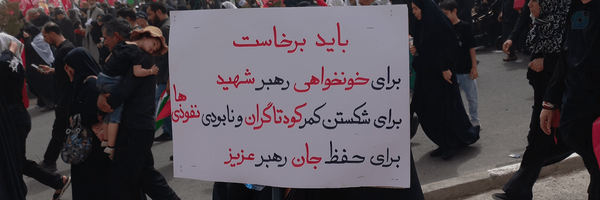 باید برخاست
برای خونخواهی رهبر شهید
برای شکستن کمر کودتاگران و نابودی نفوذی ها
برای حفظ جان رهبر عزیز